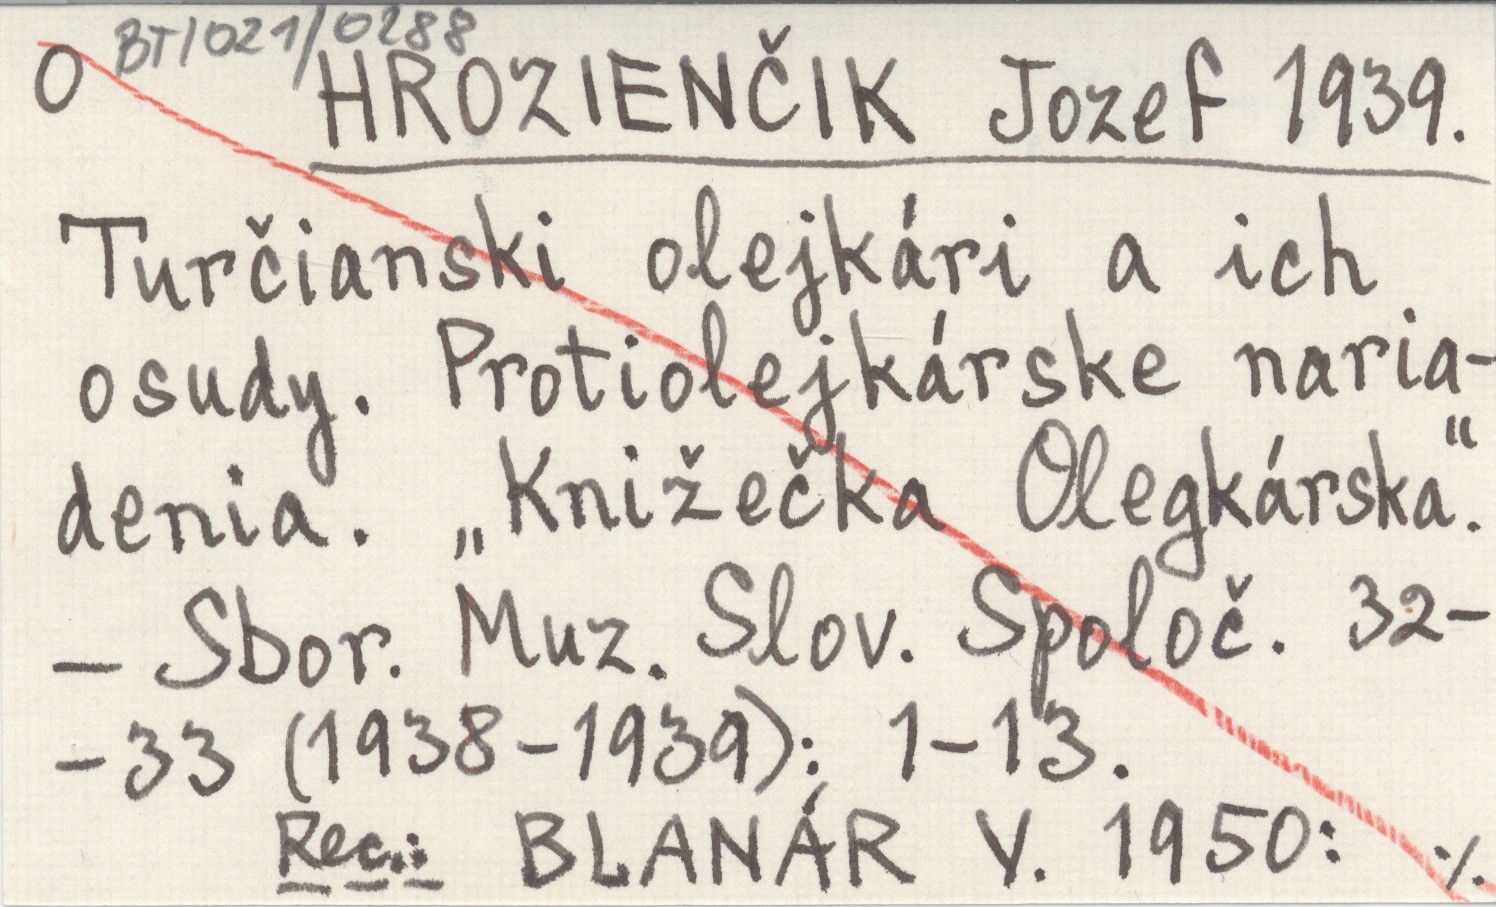 O BT/021/0288
HROZIENČIK Jozef 1939.
Turčianski olejkári a ich
osudy. Protiolejkárske naria-
denia. „Knižečka Olegkárska“.
— Sbor. Muz. Slov. Spoloč. 32-
-33 (1938-1939): 1-13.
Rec.: BLANÁR V. 1950: ·/.